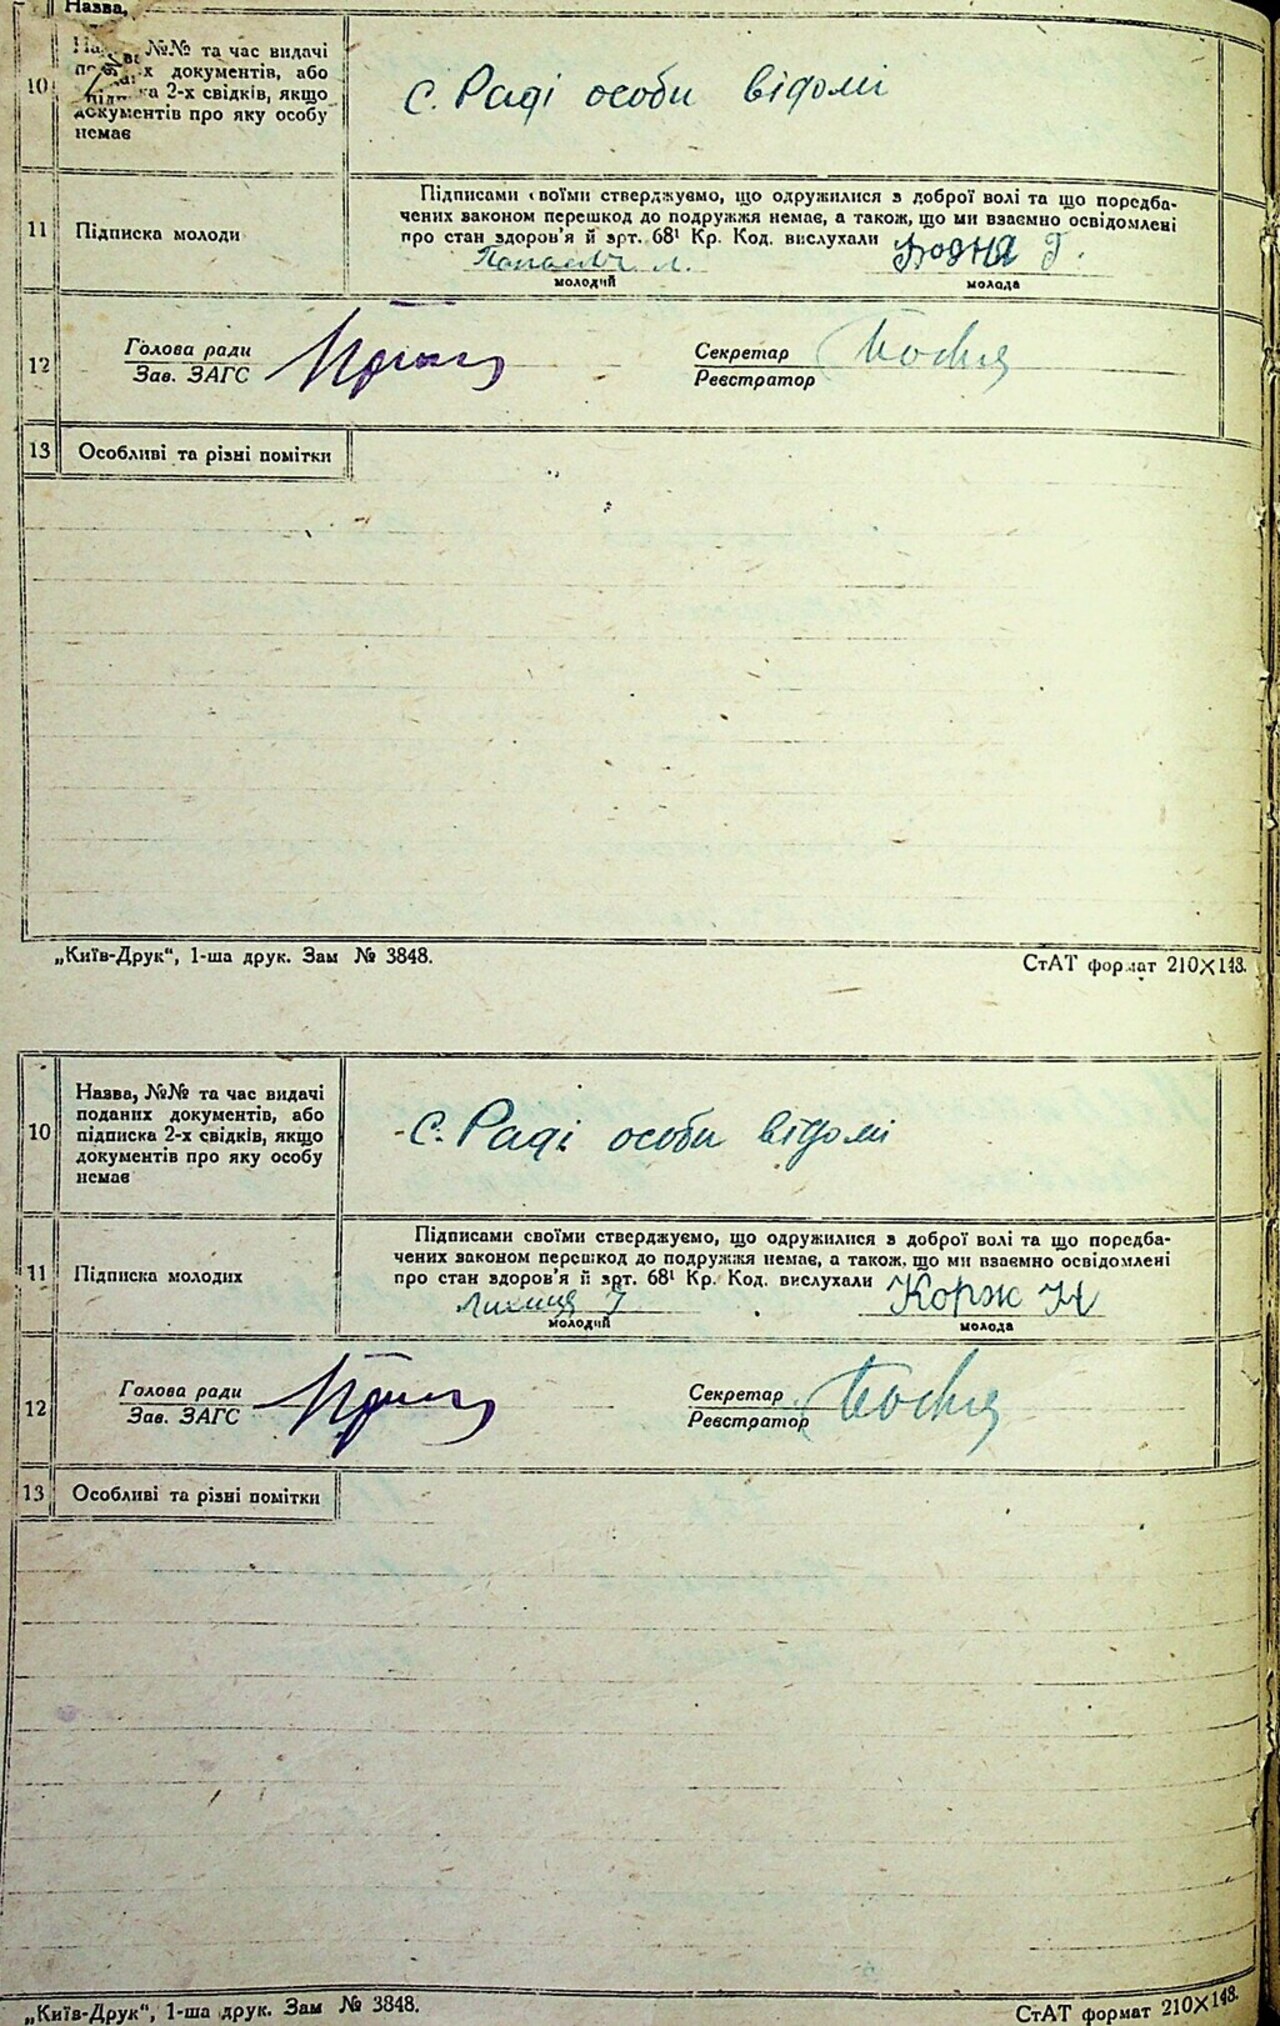 Назва,
10
№№ та час видачі
документів, або
2-х свідків, якщо
документів про яку особу
немає
с. Раді особи відомі
11
Підписка молоди
Підписами своїми стверджуємо, що одружилися з доброї волі та що передба-
чених законом перешкод до подружжя немає, а також, що ми взаємно освідомлені
про стан здоров'я й арт. 68¹ Кр. Код. вислухали
Возня Г.
молодий
молода
12
Голова ради
Зав. ЗАГС
Секретар
Реєстратор
13
Особливі та різні помітки
„Київ-Друк“, 1-ша друк. Зам № 3848.
СтАТ формат 210X148.
10
Назва, №№ та час видачі
поданих документів, або
підписка 2-х свідків, якщо
документів про яку особу
немає
с. Раді особи відомі
11
Підписка молодих
Підписами своїми стверджуємо, що одружилися з доброї волі та що передба-
чених законом перешкод до подружжя немає, а також, що ми взаємно освідомлені
про стан здоров'я й арт. 68¹ Кр. Код. вислухали
Корж Н
молодий
молода
12
Голова ради
Зав. ЗАГС
Секретар
Реєстратор
13
Особливі та різні помітки
„Київ-Друк“, 1-ша друк. Зам № 3848.
СтАТ формат 210X148.